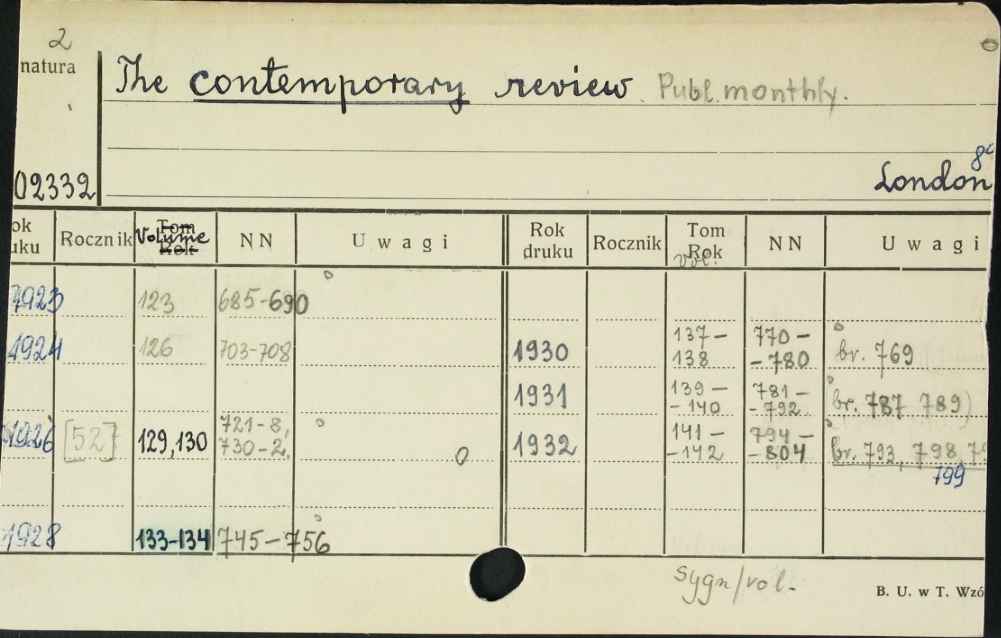 2
natura
The contemporary review. Publ. monthly.
8°
02332
London
ok
uku
Rocznik
Tom
Volume
Rok
NN
Uwagi
Rok
druku
Rocznik
Tom
Rok
vol.
NN
Uwagi
1923 123 685-690
1924 126 703-708
1926 [52] 129,130 721-8,
730-2,
1928 133-134 745-756
1930 137-
138 770-
-780 br. 769
1931 139-
-140 781-
-792 br. 787 789)
1932 141-
-142 794-
-804 br. 793, 798, 79
799
Sygn/vol.
B. U. w T. Wzó